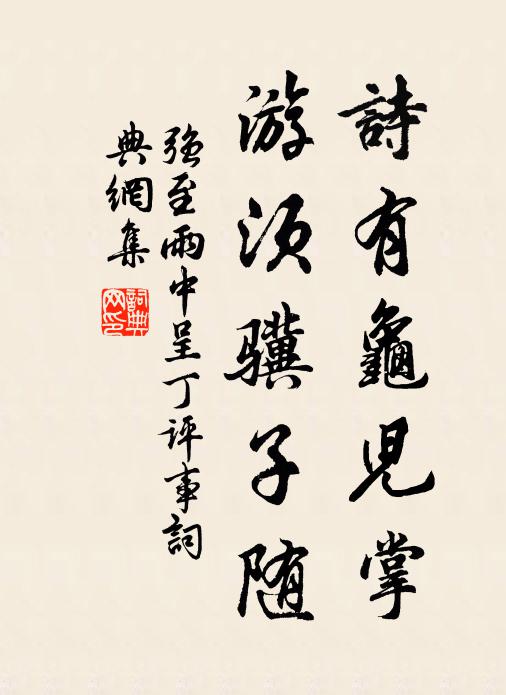 詩有龜兒掌
游須驥子随
強至雨中呈丁評事詞
典網集
詞典
网印